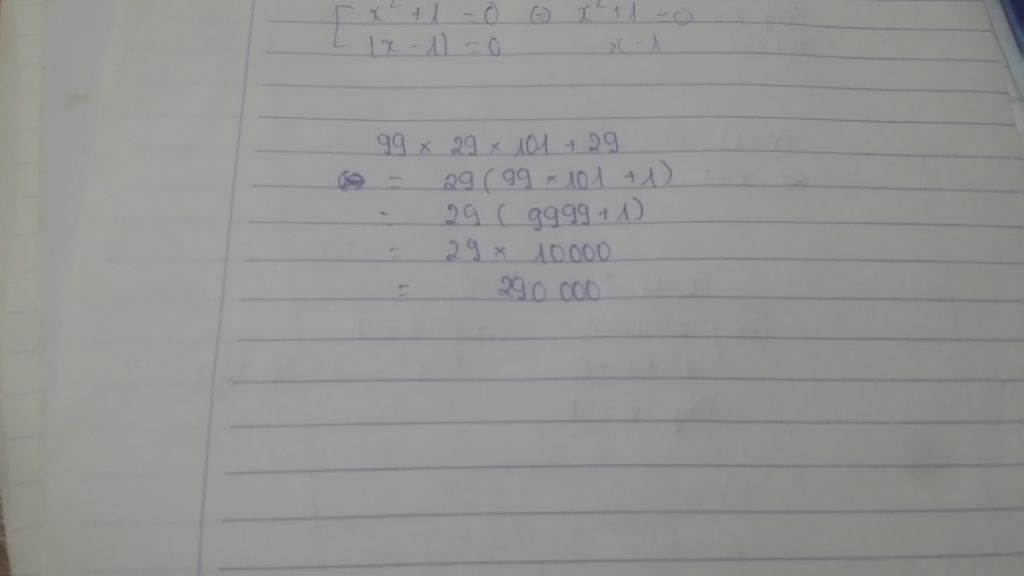 x² + 1 = 0 ⇔ x² + 1 = 0
|x - 1| = 0 x - 1
99 × 29 × 101 + 29
= 29 ( 99 × 101 + 1 )
= 29 ( 9999 + 1 )
= 29 × 10000
= 290 000